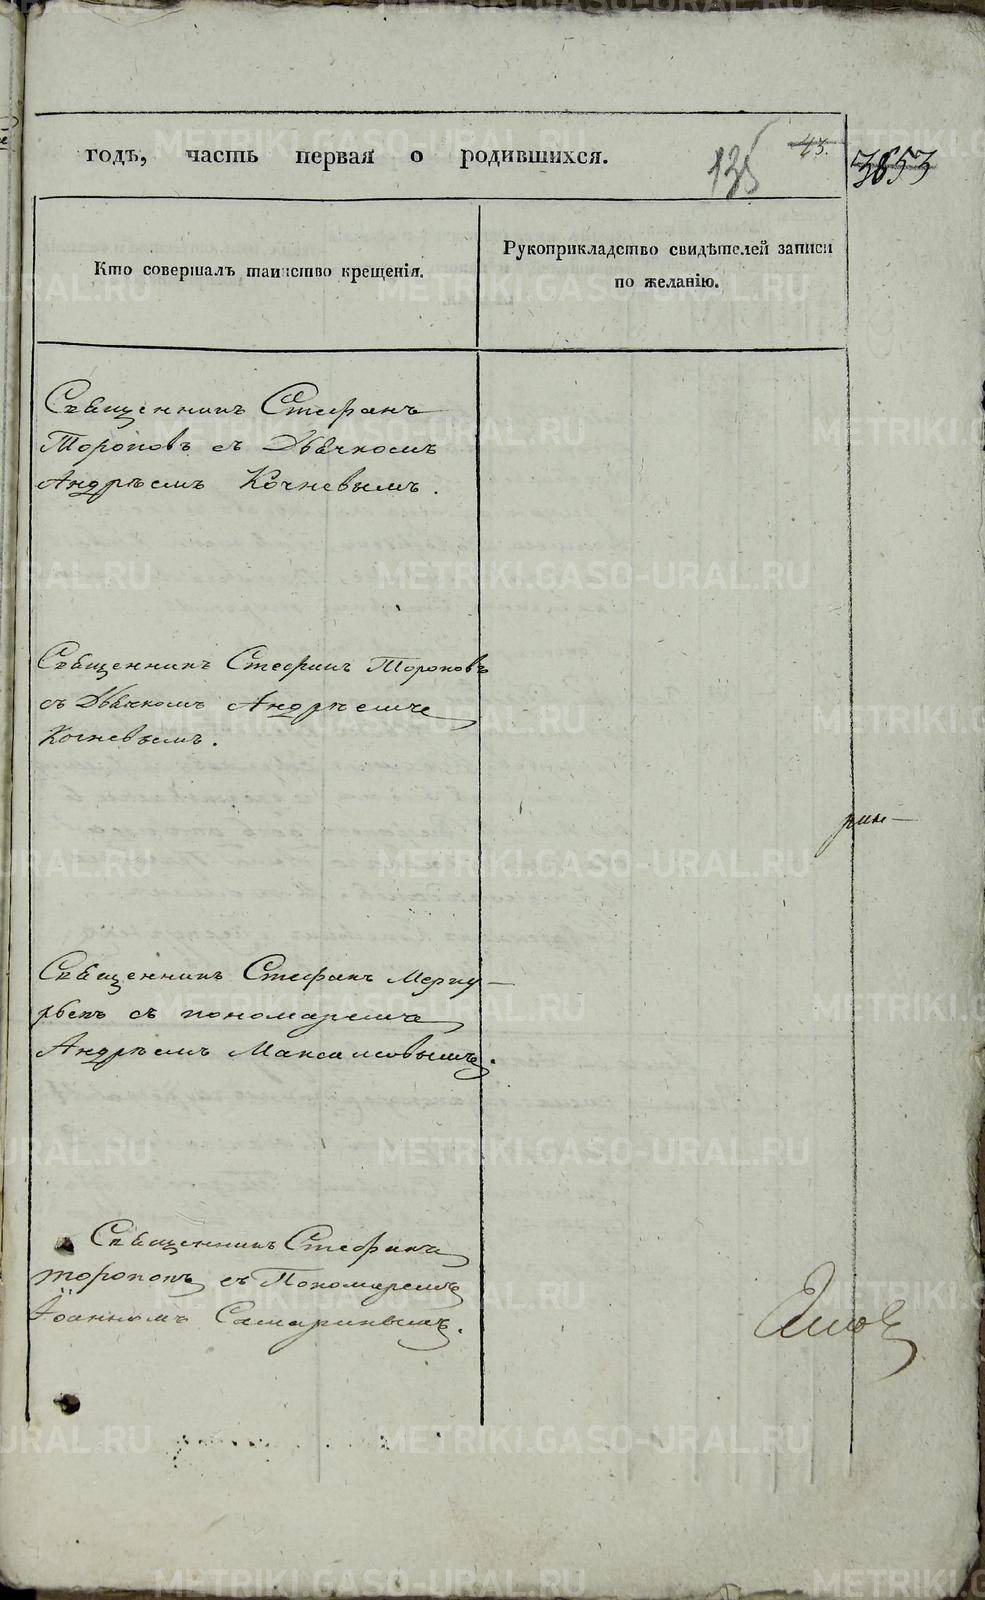 годѣ, часть первая о родившихся.
135
43.
3653
Кто совершалъ таинство крещенія.
Рукоприкладство свидѣтелей записи
по желанію.
Священникъ Стефанъ
Тороповъ съ Дьячкомъ
Андрѣемъ Кочневымъ.
Священникъ Стефанъ Тороповъ
съ Дьячкомъ Андрѣемъ
Кочневымъ.
Священникъ Стефанъ Мерку-
рьевъ съ пономаремъ
Андрѣемъ Максимовымъ.
Священникъ Стефанъ
Тороповъ съ Пономаремъ
Іоанномъ Самаринымъ.
METRIKI.GASO-URAL.RU